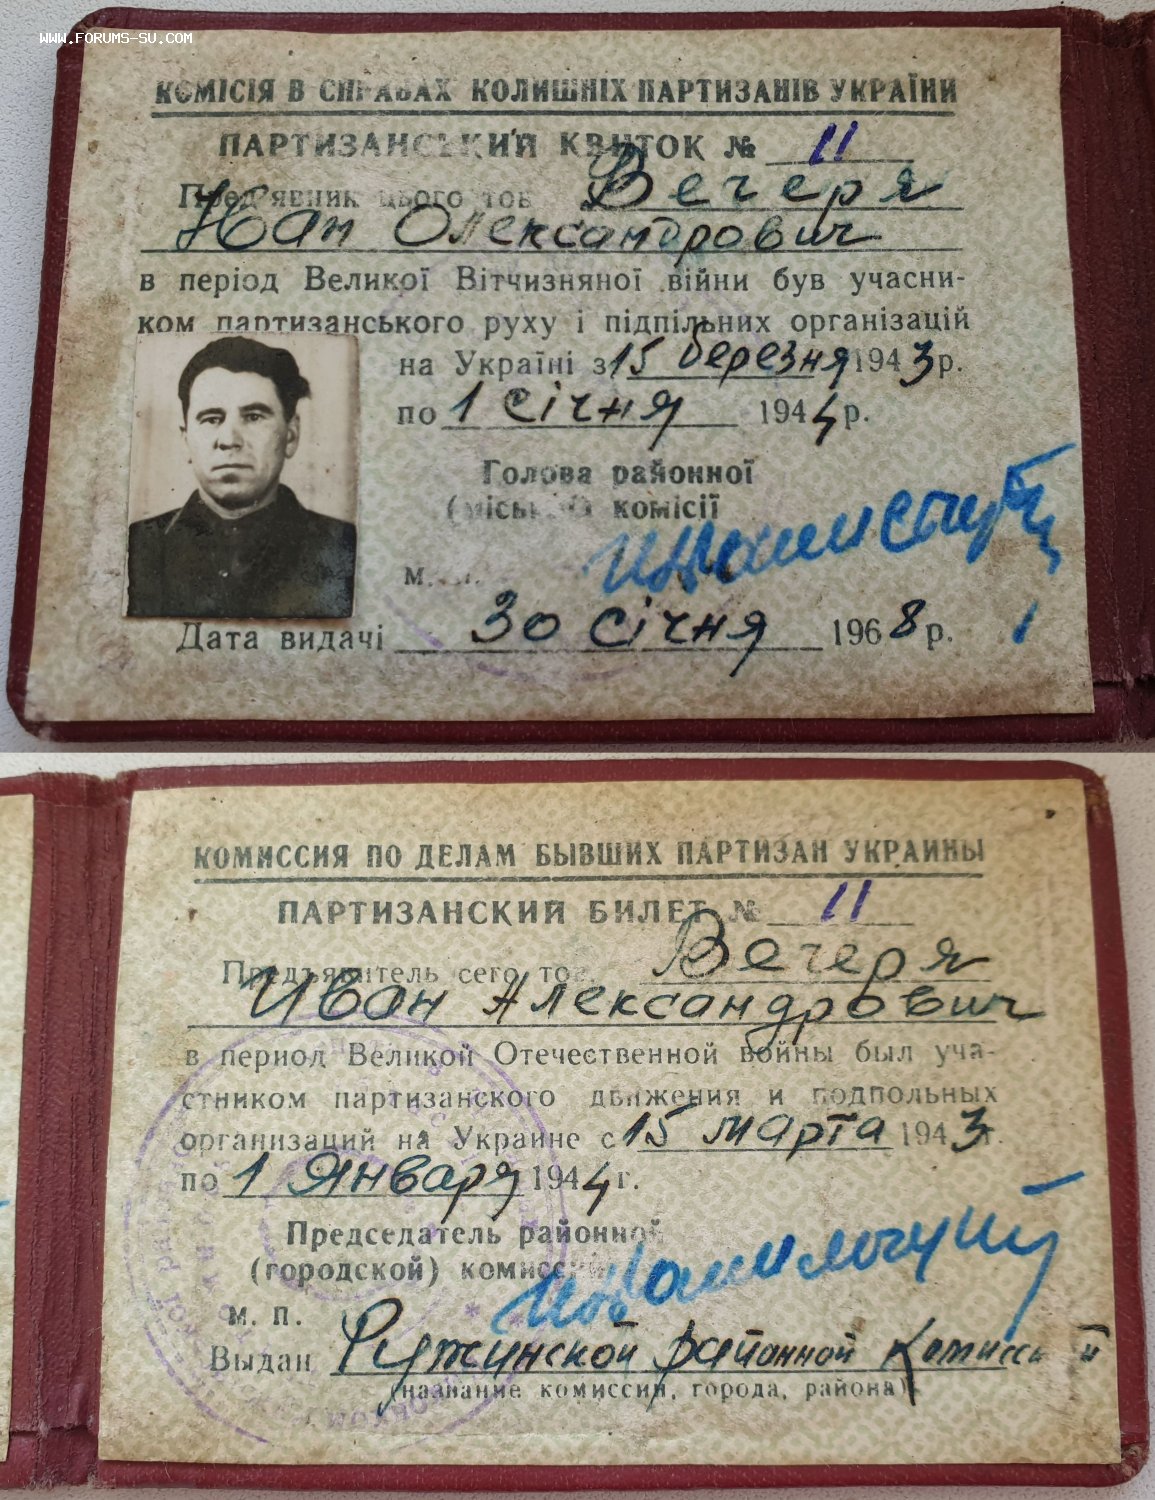 WWW.FORUMS-SU.COM
КОМІСІЯ В СПРАВАХ КОЛИШНІХ ПАРТИЗАНІВ УКРАЇНИ
ПАРТИЗАНСЬКИЙ КВИТОК № 11
Пред'явник цього тов. Вечеря
Іван Олександрович
в період Великої Вітчизняної війни був учасни-
ком партизанського руху і підпільних організацій
на Україні з 15 березня 1943 р.
по 1 січня 1944 р.
Голова районної
(міської) комісії
М. П.
Дата видачі 30 січня 1968 р.
КОМИССИЯ ПО ДЕЛАМ БЫВШИХ ПАРТИЗАН УКРАИНЫ
ПАРТИЗАНСКИЙ БИЛЕТ № 11
Предъявитель сего тов. Вечеря
Иван Александрович
в период Великой Отечественной войны был уча-
стником партизанского движения и подпольных
организаций на Украине с 15 марта 1943 г.
по 1 января 1944 г.
Председатель районной
(городской) комиссии
М. П.
Выдан Ружинской районной комиссией
(название комиссии, города, района)